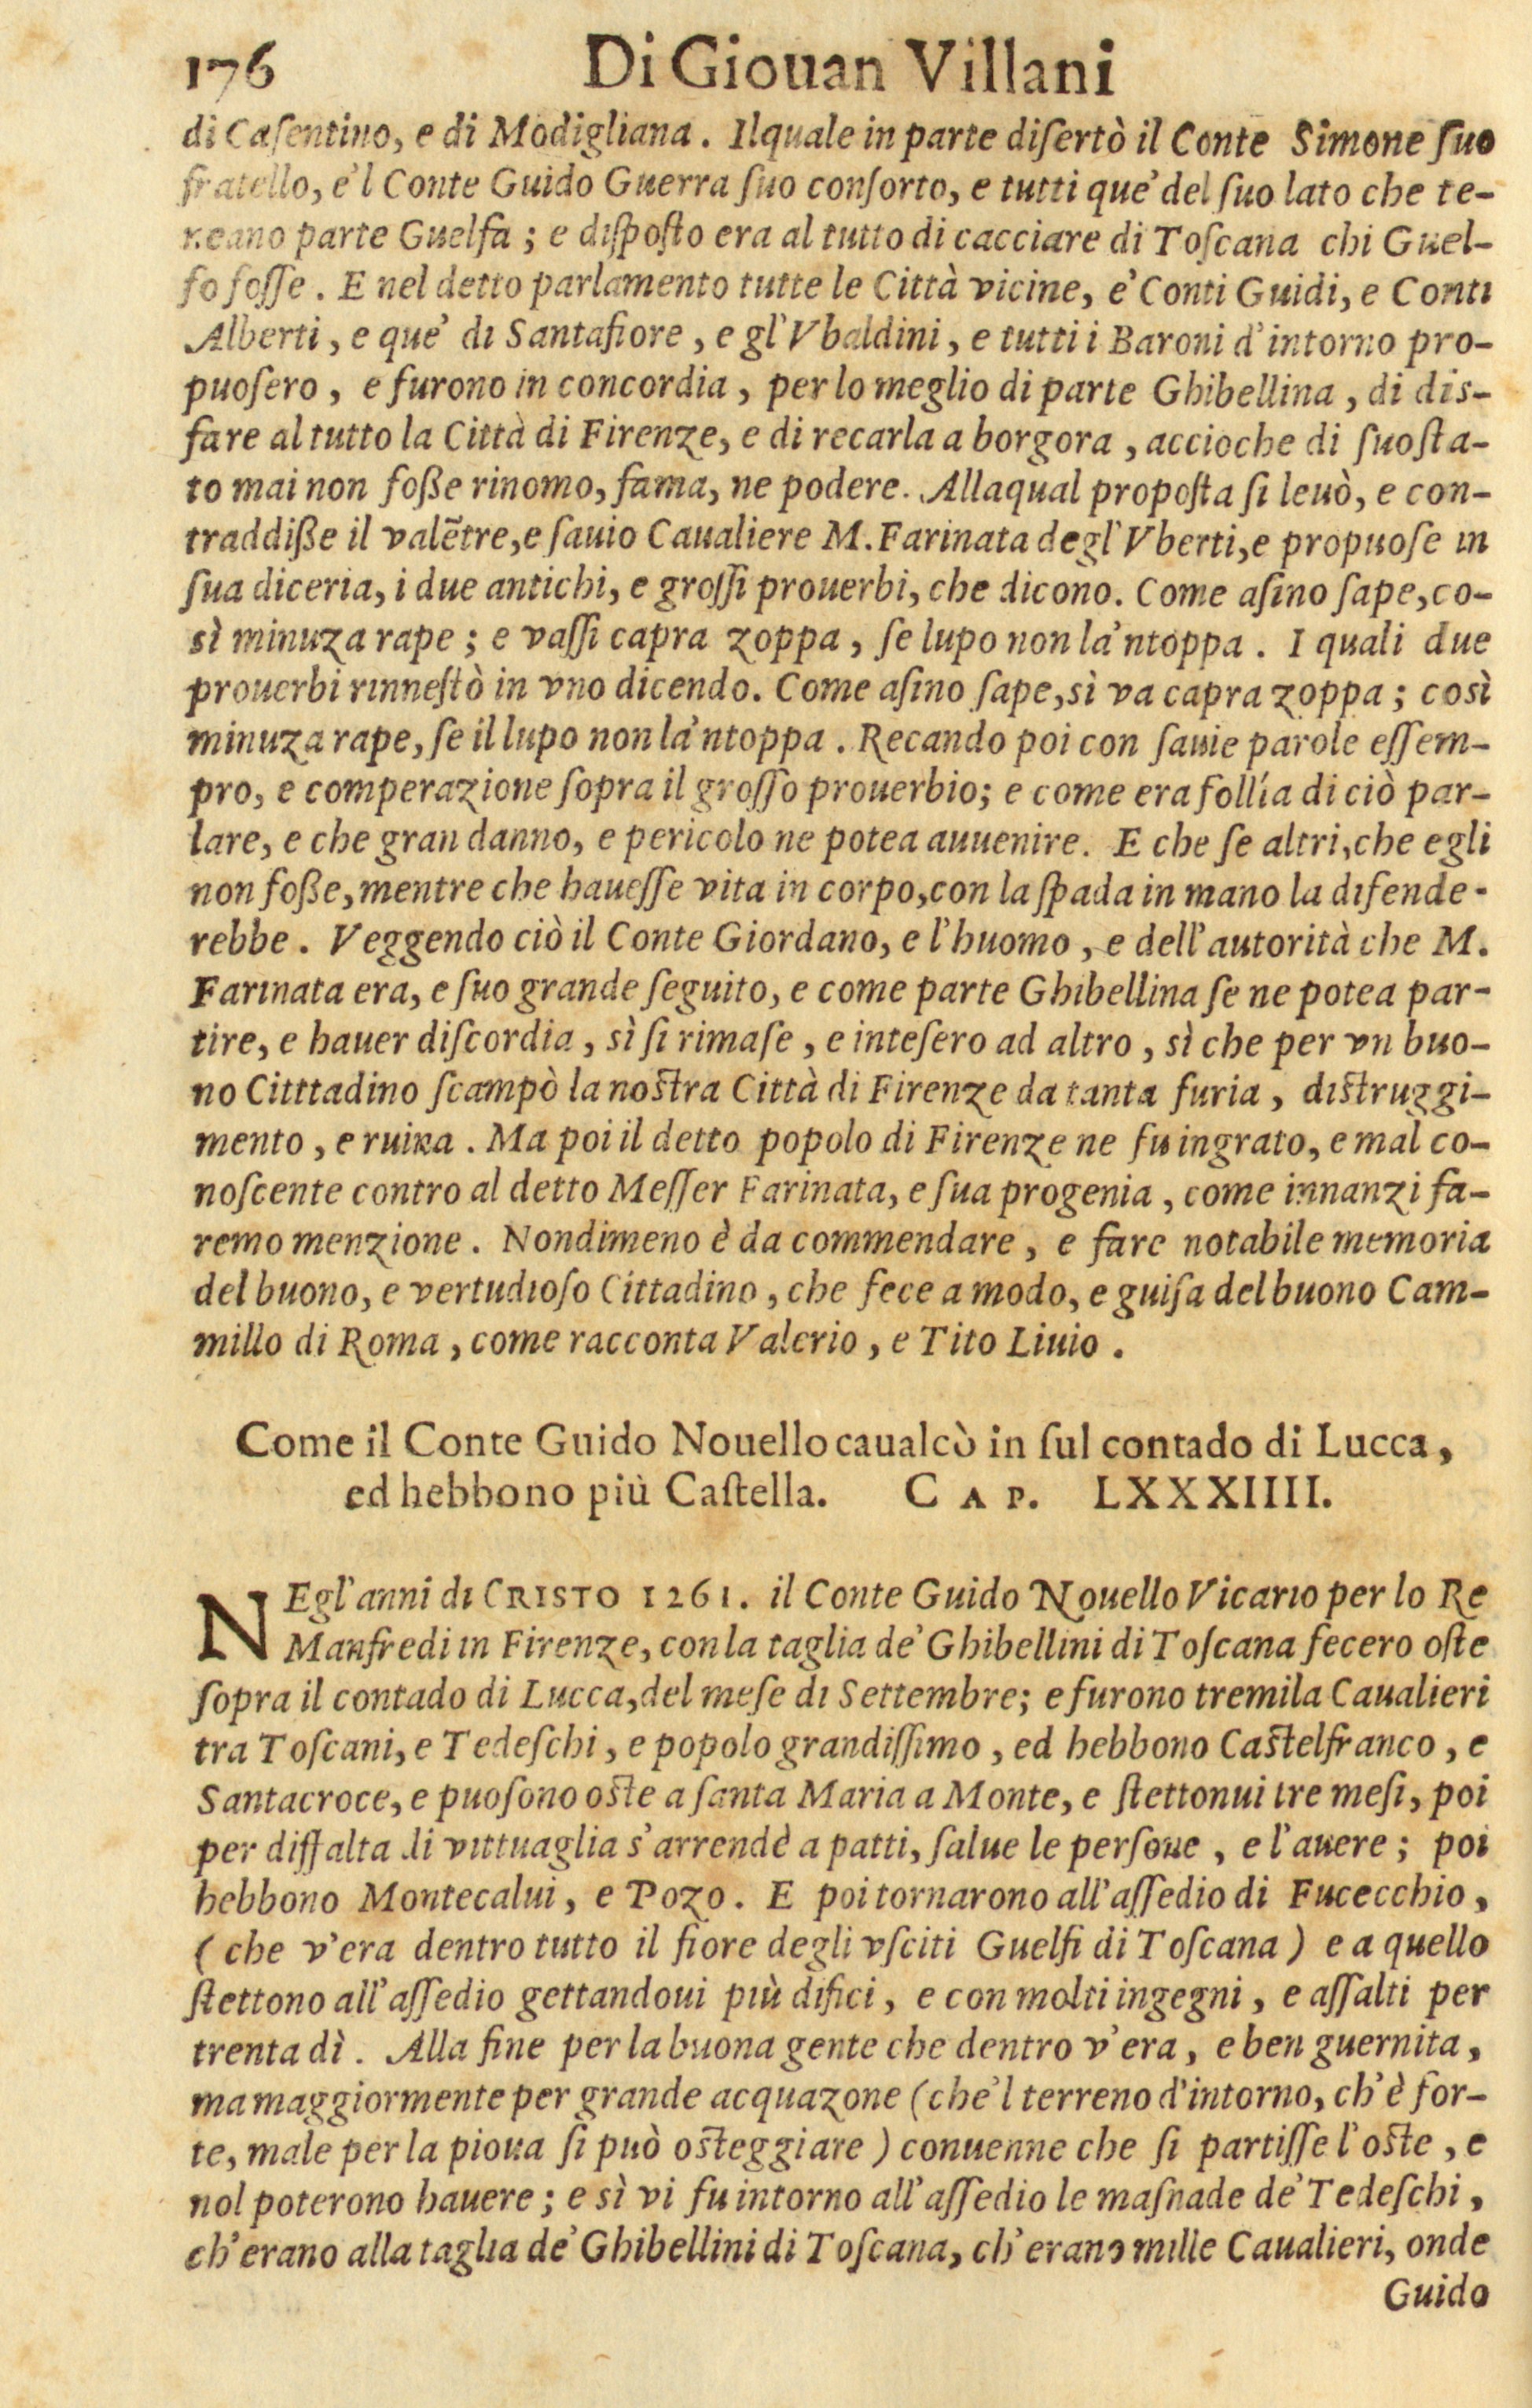 176 Di Giouan Villani
di Caſentino, e di Modigliana. Ilquale in parte diſertò il Conte Simone ſuo
fratello, e'l Conte Guido Guerra ſuo conſorto, e tutti que' del ſuo lato che te-
neano parte Guelfa; e diſpoſto era al tutto di cacciare di Toſcana chi Guel-
fo foſſe. E nel detto parlamento tutte le Città vicine, e' Conti Guidi, e Conti
Alberti, e que' di Santafiore, e gl'Vbaldini, e tutti i Baroni d'intorno pro-
puoſero, e furono in concordia, per lo meglio di parte Ghibellina, di dis-
fare al tutto la Città di Firenze, e di recarla a borgora, accioche di ſuo ſta-
to mai non foße rinomo, fama, ne podere. Allaqual propoſta ſi leuò, e con-
traddiße il valẽtre, e ſauio Caualiere M. Farinata degl'Vberti, e propuoſe in
ſua diceria, i due antichi, e groſſi prouerbi, che dicono. Come aſino ſape, co-
sì minuza rape; e vaſſi capra zoppa, ſe lupo non la'ntoppa. I quali due
prouerbi rinneſtò in vno dicendo. Come aſino ſape, sì va capra zoppa; così
minuza rape, ſe il lupo non la'ntoppa. Recando poi con ſauie parole eſſem-
pro, e comperazione ſopra il groſſo prouerbio; e come era follía di ciò par-
lare, e che gran danno, e pericolo ne potea auuenire. E che ſe altri, che egli
non foße, mentre che haueſſe vita in corpo, con la ſpada in mano la difende-
rebbe. Veggendo ciò il Conte Giordano, e l'huomo, e dell'autorità che M.
Farinata era, e ſuo grande ſeguito, e come parte Ghibellina ſe ne potea par-
tire, e hauer diſcordia, sì ſi rimaſe, e inteſero ad altro, sì che per vn buo-
no Citttadino ſcampò la noſtra Città di Firenze da tanta furia, diſtruggi-
mento, e ruina. Ma poi il detto popolo di Firenze ne fu ingrato, e mal co-
noſcente contro al detto Meſſer Farinata, e ſua progenia, come innanzi fa-
remo menzione. Nondimeno è da commendare, e fare notabile memoria
del buono, e vertudioſo Cittadino, che fece a modo, e guiſa del buono Cam-
millo di Roma, come racconta Valerio, e Tito Liuio.
Come il Conte Guido Nouello caualcò in ſul contado di Lucca,
ed hebbono più Caſtella. CAP. LXXXIIII.
NEgl'anni di CRISTO 1261. il Conte Guido Nouello Vicario per lo Re
Manfredi in Firenze, con la taglia de' Ghibellini di Toſcana fecero oſte
ſopra il contado di Lucca, del meſe di Settembre; e furono tremila Caualieri
tra Toſcani, e Tedeſchi, e popolo grandiſſimo, ed hebbono Caſtelfranco, e
Santacroce, e puoſono oſte a ſanta Maria a Monte, e ſtettonui tre meſi, poi
per diffalta di vittuaglia s'arrendè a patti, ſalue le perſoue, e l'auere; poi
hebbono Montecalui, e Pozo. E poi tornarono all'aſſedio di Fucecchio,
(che v'era dentro tutto il fiore degli vſciti Guelfi di Toſcana) e a quello
ſtettono all'aſſedio gettandoui più difici, e con molti ingegni, e aſſalti per
trenta dì. Alla fine per la buona gente che dentro v'era, e ben guernita,
ma maggiormente per grande acquazone (che'l terreno d'intorno, ch'è for-
te, male per la pioua ſi può oſteggiare) conuenne che ſi partiſſe l'oſte, e
nol poterono hauere; e sì vi fu intorno all'aſſedio le maſnade de' Tedeſchi,
ch'erano alla taglia de' Ghibellini di Toſcana, ch'erano mille Caualieri, onde
Guido